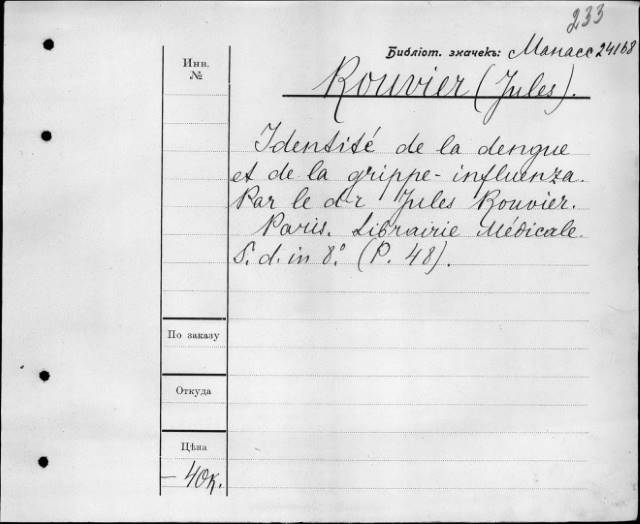 233
Библіот. значекъ: Манасс 24168
Инв.
№
Rouvier (Jules).
Identité de la dengue
et de la grippe-influenza.
Par le d-r Jules Rouvier.
Paris. Librairie Médicale.
S. d. in 8.° (P. 48).
По заказу
Откуда
Цѣна
— 40к.